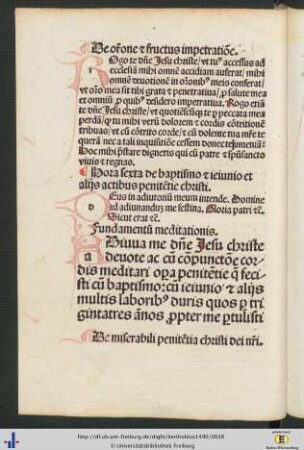 De oratōe ⁊ fructus impetratiōe.
Rogo te dn̄e Jesu christe / vt tuꝰ accessus ad
ecclesiā mihi omnē accidiam auferat / mihi
omnē deuotionē in orōnibꝰ meis conferat /
vt orō mea sit tibi grata ⁊ penetratiua / ꝓ salute mea
et omniū ꝓ quibꝰ desidero impetratiua. Rogo etiā
te dn̄e Jesu christe / vt quotiēscūqꝫ te ꝑ peccata mea
perdā / tu mihi verū dolorem ⁊ cordis cōtritionē
tribuas / vt cū cōtrito corde / ⁊ cū dolente tua mr̄e te
querā nec a tali inquisitiōe cessem donec te inueniā
Hoc mihi p̄stare digneris qui cū patre ⁊ sp̄usancto
viuis et regnas.
Hora sexta de baptismo ⁊ ieiunio et
alijs actibus penitētie christi.
Deus in adiutoriū meum intende. Domine
ad adiuuandum me festina. Gloria patri ⁊c̄.
Sicut erat ⁊c̄.
Fundamentū meditationis.
Adiuua me dn̄e Jesu christe
deuote ac cū cōpunctōe cor
dis meditari opa penitētie q̄ feci
sti cū baptismo: cū ieiunio ⁊ alijs
multis laboribꝰ duris quos ꝑ tri
gintatres ānos ꝓpter me ꝑtulisti
De miserabili penitētia christi dei nr̄i.
http://dl.ub.uni-freiburg.de/diglit/bertholdus1490/0038
© Universitätsbibliothek Freiburg